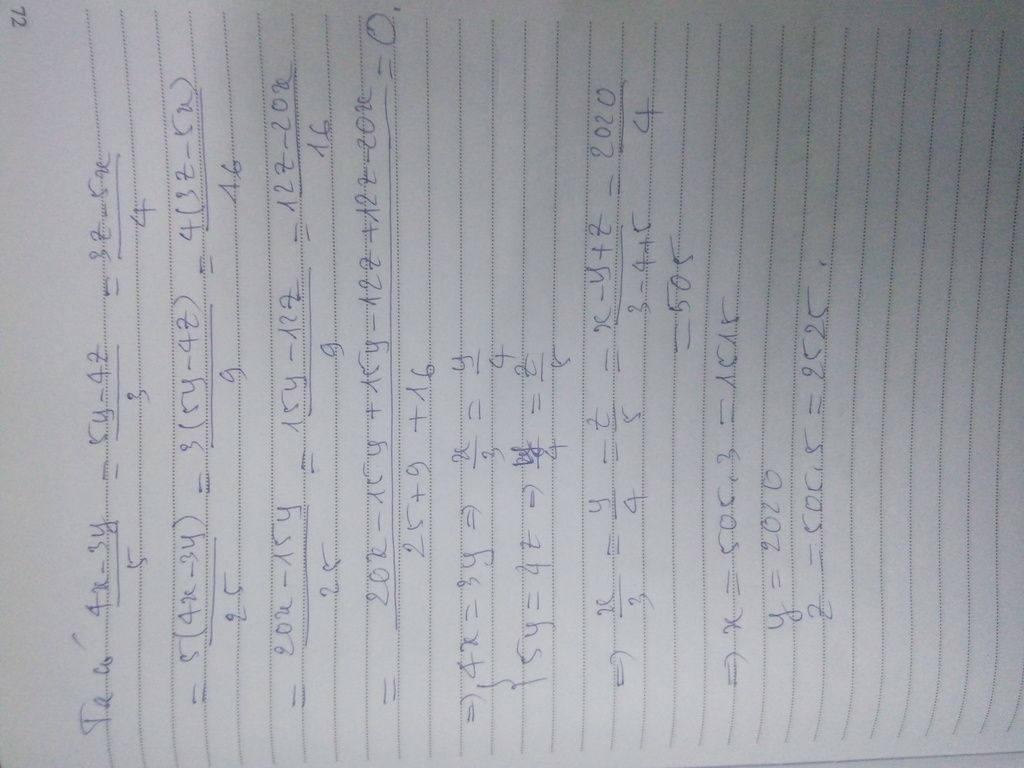 22
Ta có 4x-3y/5 = 5y-4z/3 = 3z-5x/4
= 5(4x-3y)/25 = 3(5y-4z)/9 = 4(3z-5x)/16
= 20x-15y/25 = 15y-12z/9 = 12z-20x/16
= 20x-15y+15y-12z+12z-20x/25+9+16 = 0.
=> { 4x = 3y => x/3 = y/4
5y = 4z => y/4 = z/5
=> x/3 = y/4 = z/5 = x-y+z/3-4+5 = 2020/4
= 505
=> x = 505.3 = 1515
y = 2020
z = 505.5 = 2525.